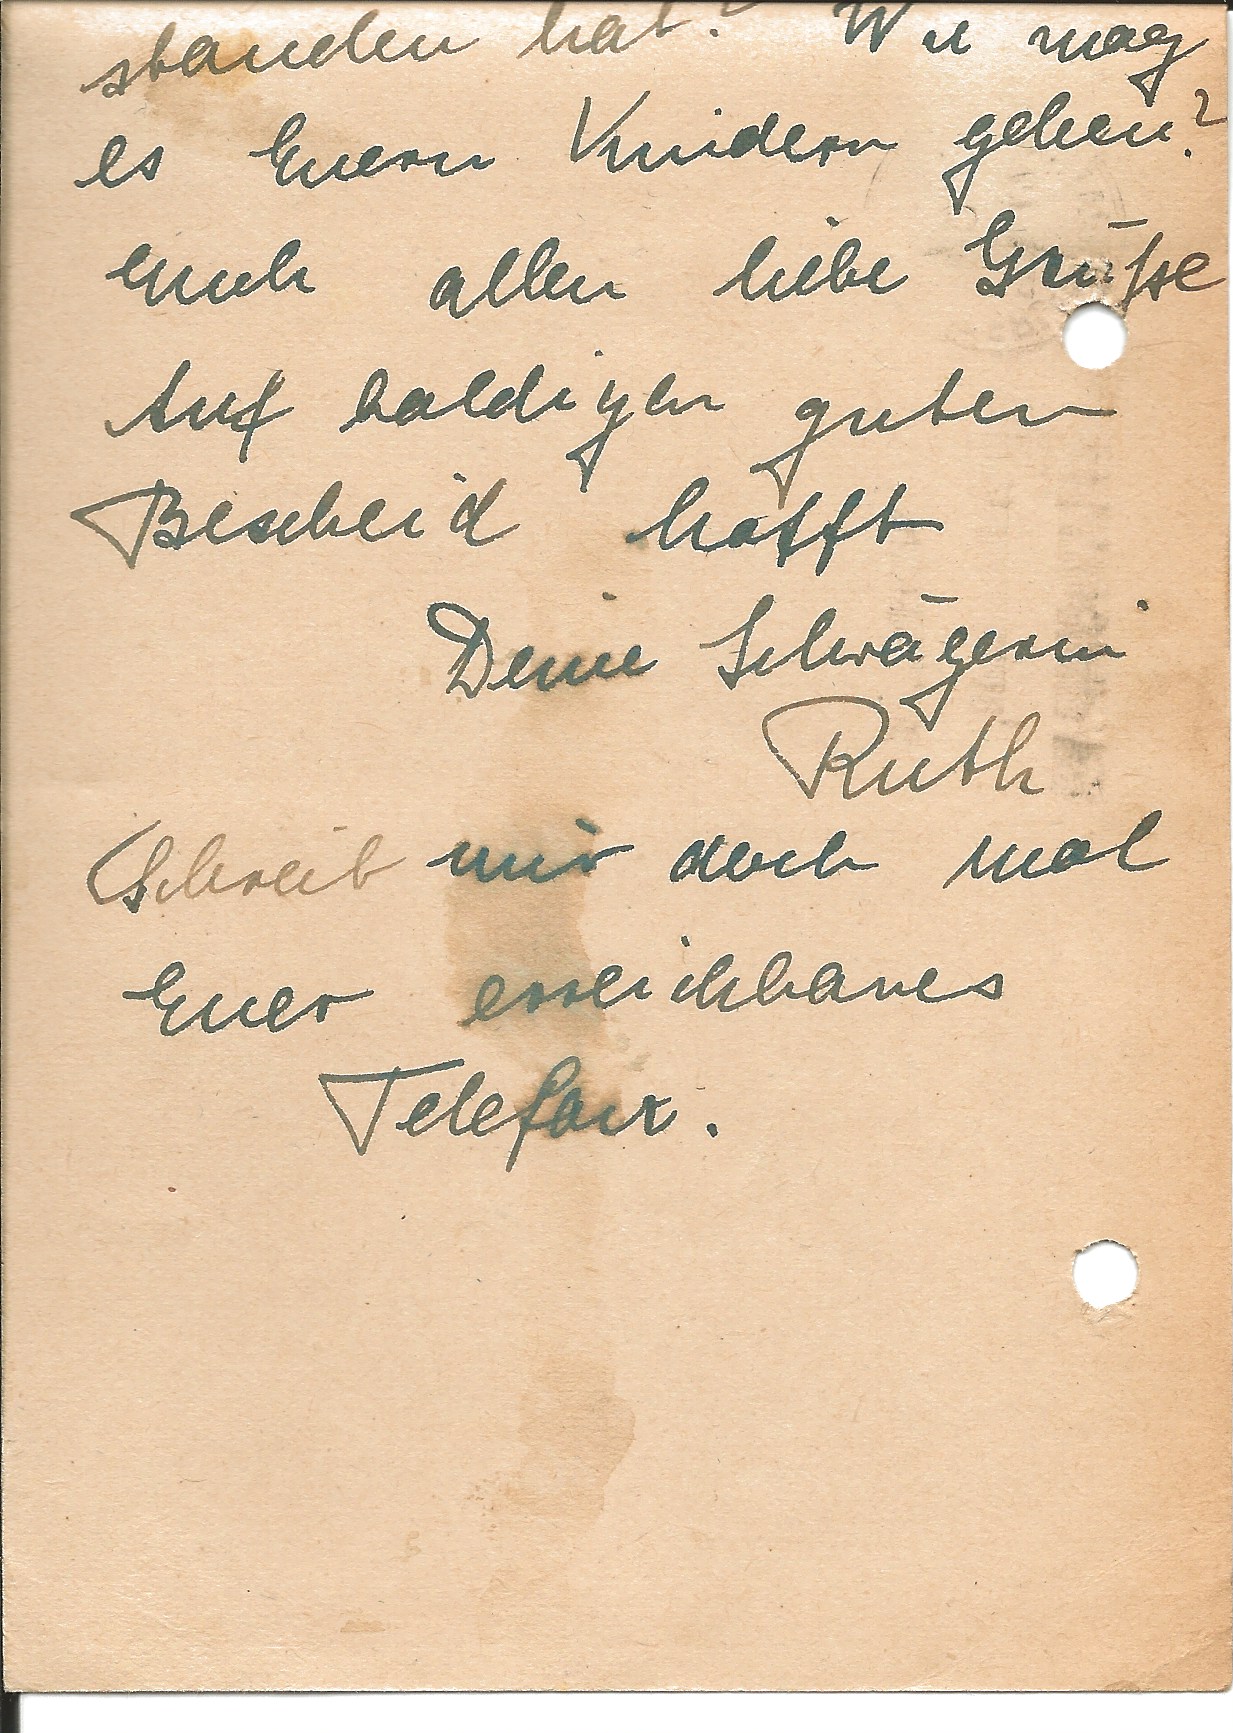 standen hat? Wie mag
es Euern Kindern gehen?
Euch allen liebe Grüße
Auf baldigen guten
Bescheid hofft
Deine Schwägerin
Ruth
Schreib mir doch mal
Euer erreichbares
Telefon.